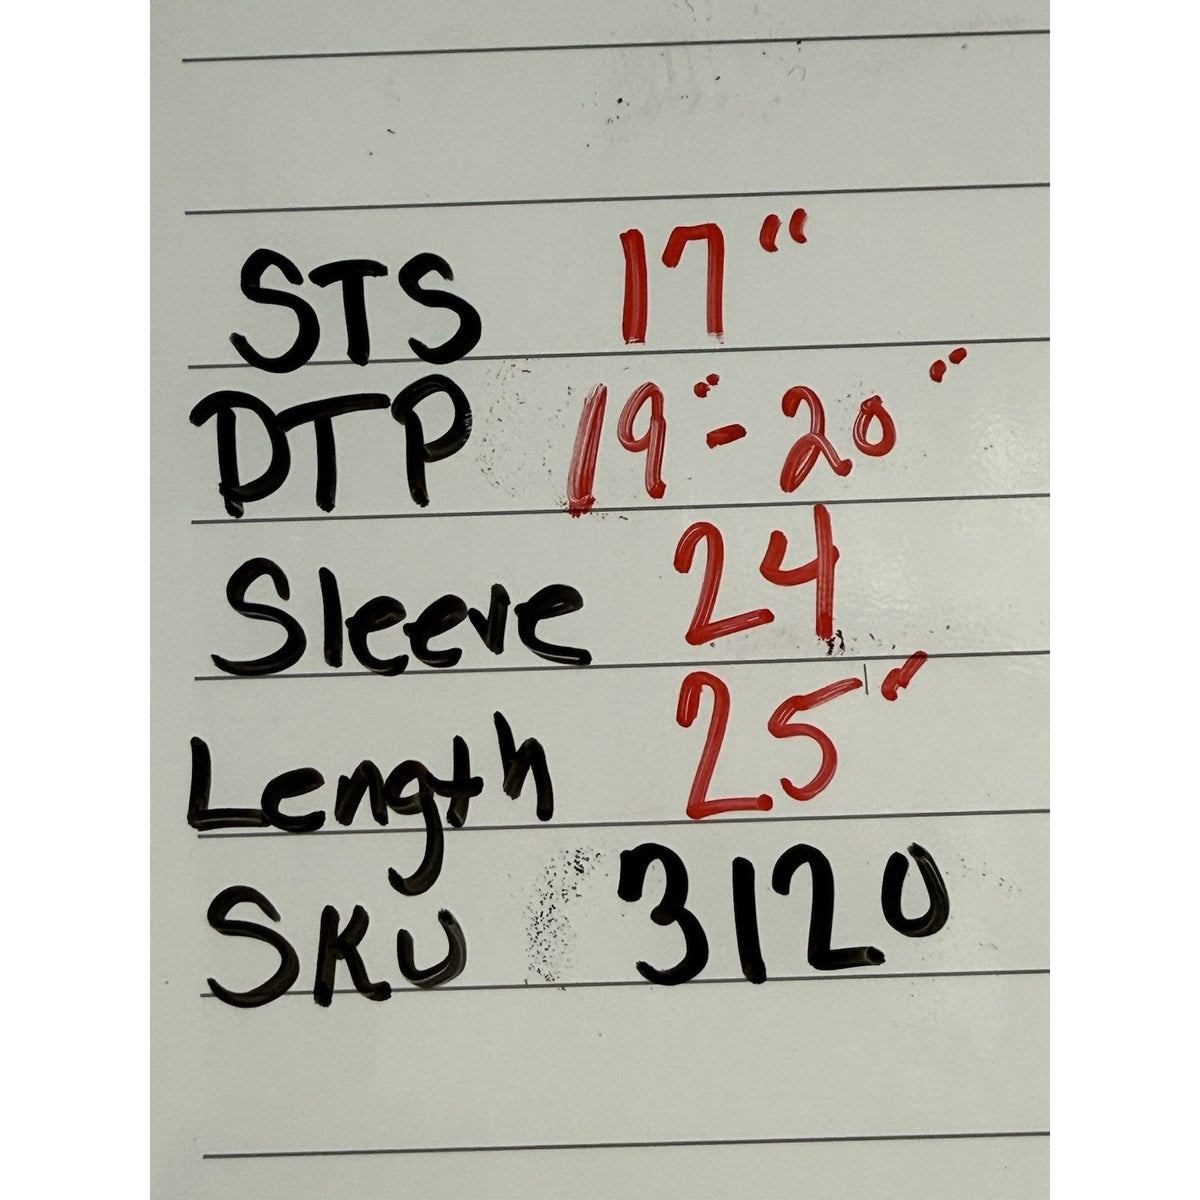 STS 17"
DTP 19"-20"
Sleeve 24
Length 25"
SKU 3120